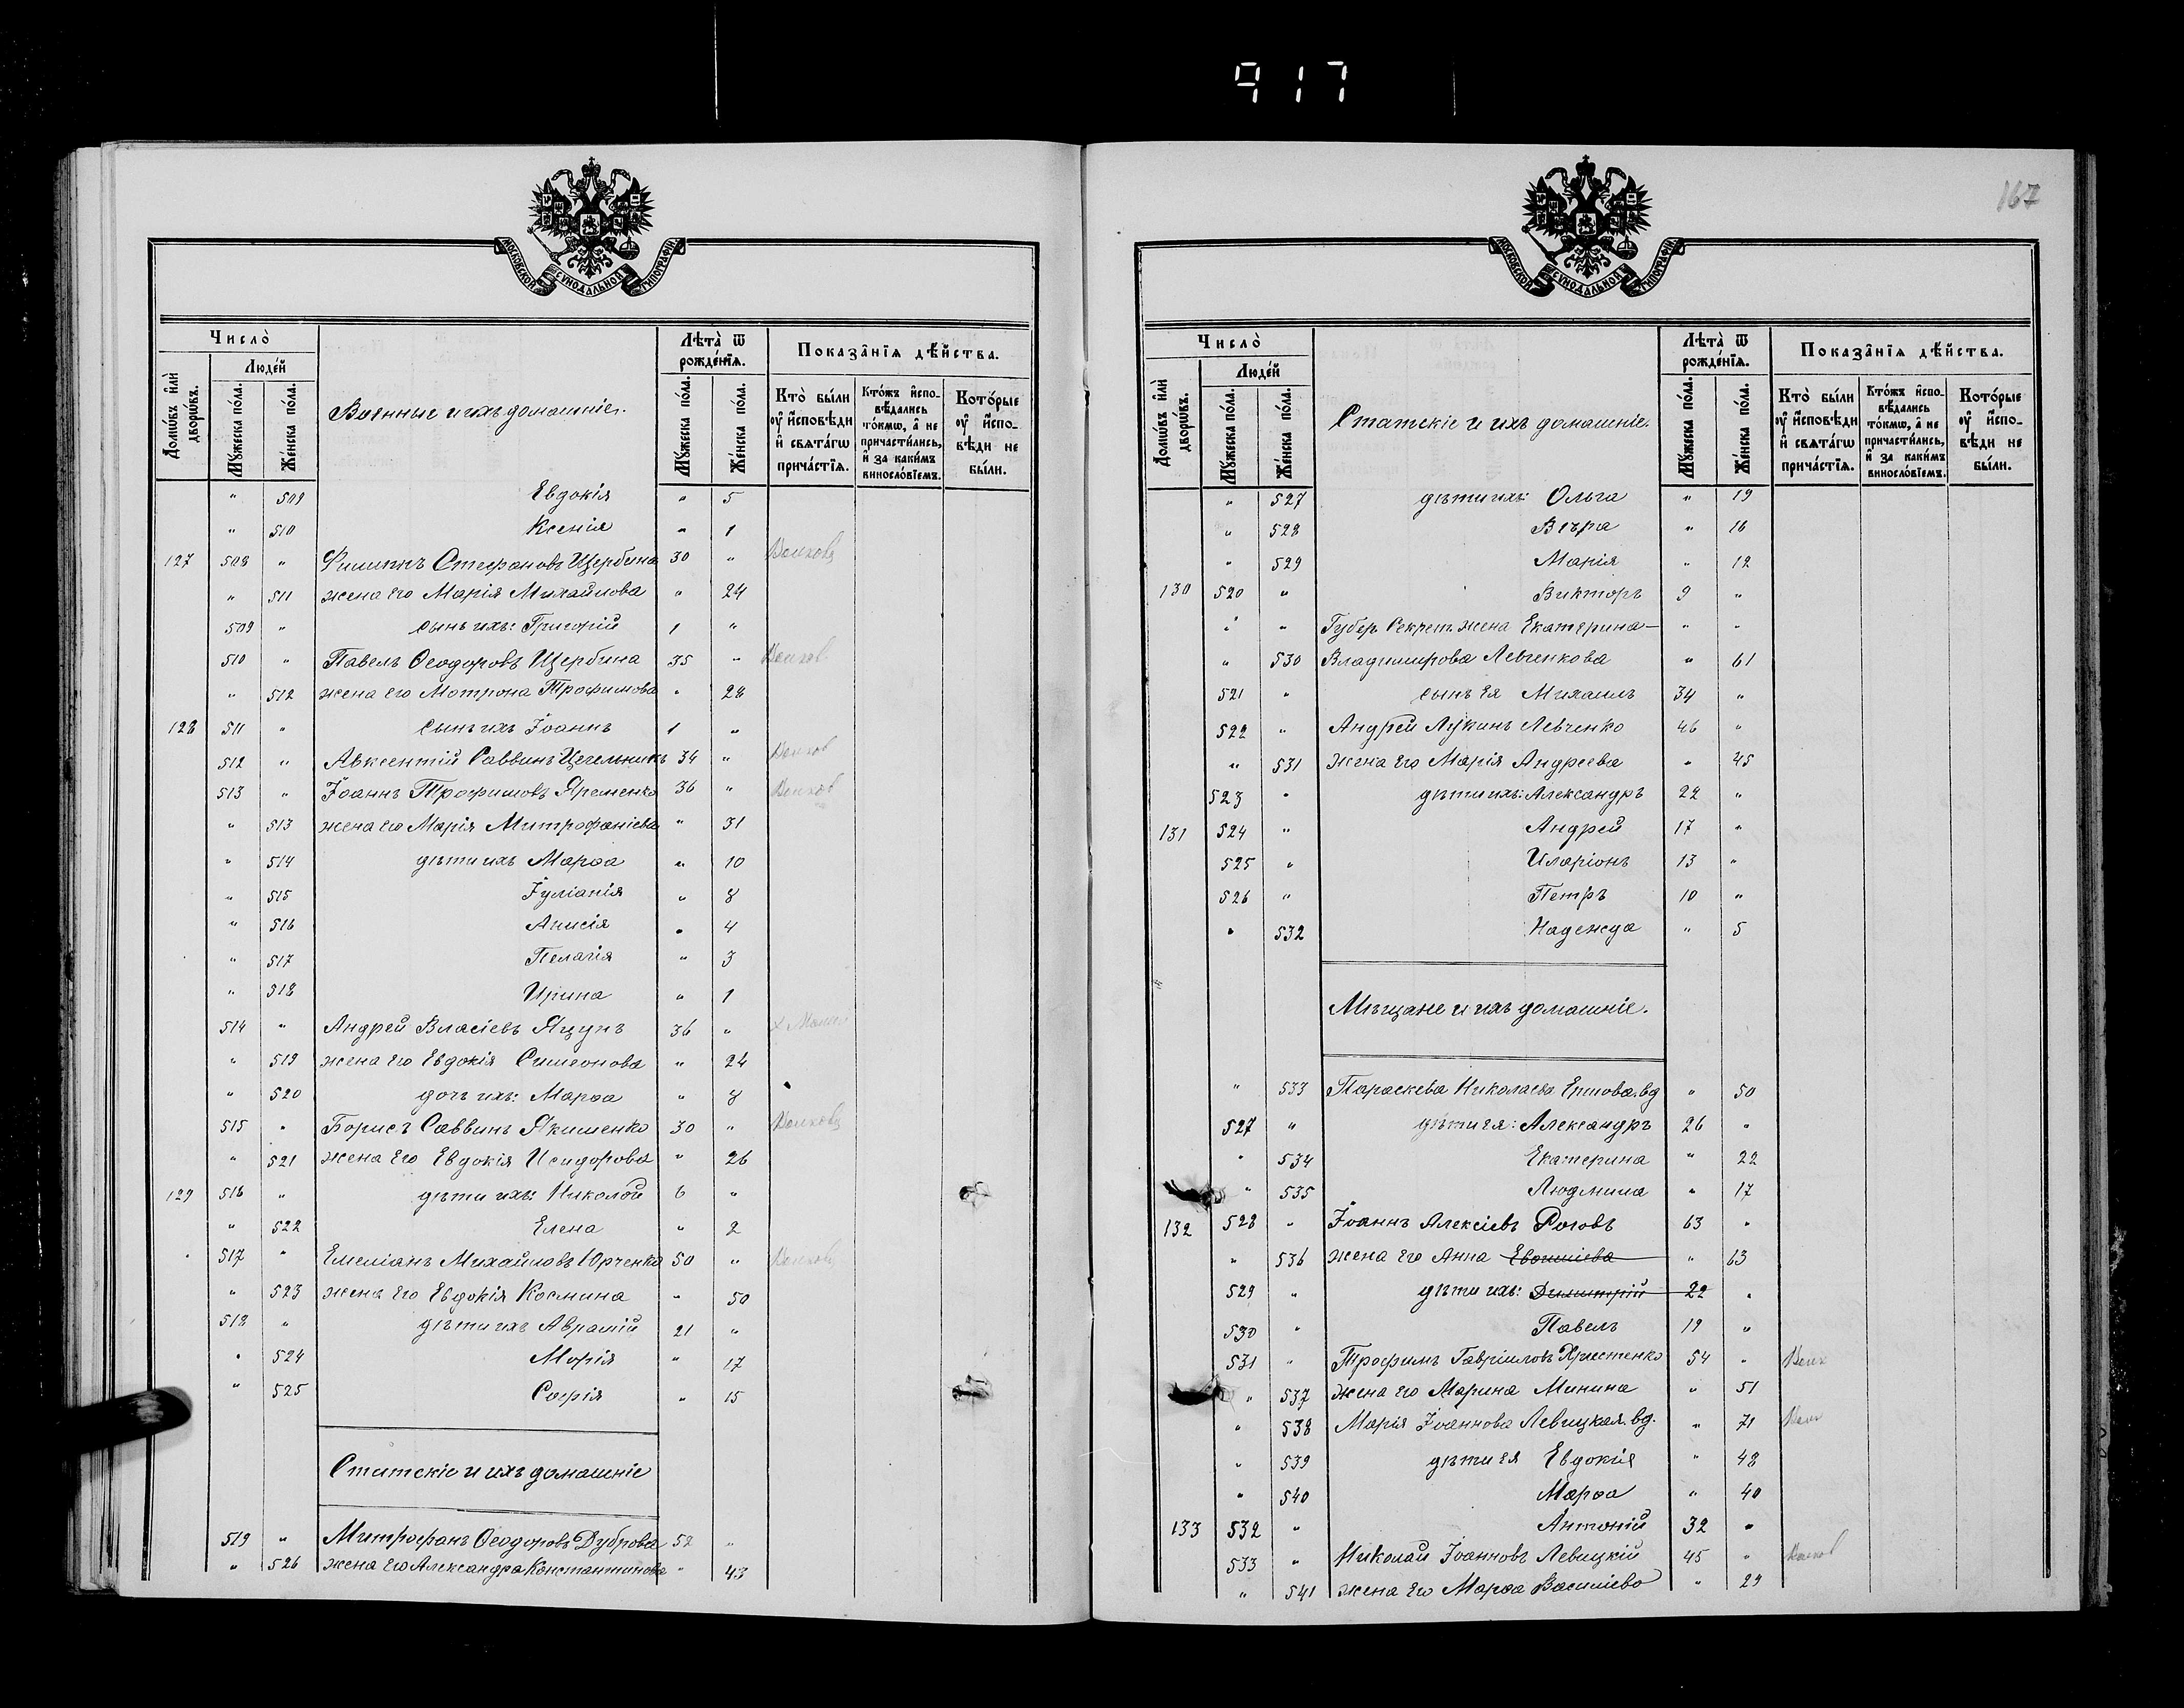 917
МОСКОВСКОЙ СУНОДАЛЬНОЙ ТИПОГРАФІИ
Число̀
Люде́й
Домѡ́въ и҆лѝ дворѡ́въ.
Мꙋ́жеска по́ла.
Же́нска по́ла.
Военные и ихъ домашніе.
Лѣта̀ ѿ рожде́нїѧ.
Мꙋ́жеска по́ла.
Же́нска по́ла.
Показа̑нїѧ дѣ́йства.
Кто̀ бы́ли ᲂу҆ и҆сповѣ́ди и҆ свѧта́гѡ прича́стїѧ.
Кто́жъ и҆сповѣ́дались то́кмѡ, а҆ не причасти́лись, и҆ за каки́мъ винослóвїемъ.
Кото́рые ᲂу҆ и҆сповѣ́ди не бы́ли.
" 509 Евдокія " 5
" 510 Ксенія " 1
127 508 " Филиппъ Стефановъ Щербина 30 "
" 511 жена его Марія Михайлова " 24
509 " сынъ ихъ: Григорій 1 "
510 " Павелъ Ѳеодоровъ Щербина 35 "
" 512 жена его Мотрона Трофимова " 28
128 511 " сынъ ихъ Іоаннъ 1 "
512 " Авксентій Саввинъ Цегельникъ 34 "
513 " Іоаннъ Трофимовъ Яременко 36 "
" 513 жена его Марія Митрофаніева " 31
" 514 дѣти ихъ Марѳа " 10
" 515 Іуліанія " 8
" 516 Анисія " 4
" 517 Пелагія " 3
" 518 Ирина " 1
514 " Андрей Власіевъ Яцунъ 36 "
" 519 жена его Евдокія Симеонова " 24
" 520 дочь ихъ: Марѳа " 8
515 " Борисъ Саввинъ Якименко 30 "
" 521 жена его Евдокія Исидорова " 26
129 516 " дѣти ихъ: Николай 6 "
" 522 Елена " 2
517 " Емеліанъ Михайловъ Юрченко 50 "
" 523 жена его Евдокія Космина " 50
518 " дѣти ихъ Аврамій 21 "
" 524 Марія " 17
" 525 Софія " 15
Статскіе и ихъ домашніе
519 " Митрофанъ Ѳеодоровъ Дуброва 52 "
" 526 жена его Александра Константинова " 43
167
МОСКОВСКОЙ СУНОДАЛЬНОЙ ТИПОГРАФІИ
Число̀
Люде́й
Домѡ́въ и҆лѝ дворѡ́въ.
Мꙋ́жеска по́ла.
Же́нска по́ла.
Статскіе и ихъ домашніе.
Лѣта̀ ѿ рожде́нїѧ.
Мꙋ́жеска по́ла.
Же́нска по́ла.
Показа̑нїѧ дѣ́йства.
Кто̀ бы́ли ᲂу҆ и҆сповѣ́ди и҆ свѧта́гѡ прича́стїѧ.
Кто́жъ и҆сповѣ́дались то́кмѡ, а҆ не причасти́лись, и҆ за каки́мъ винослóвїемъ.
Кото́рые ᲂу҆ и҆сповѣ́ди не бы́ли.
" 527 дѣти ихъ: Ольга " 19
" 528 Вѣра " 16
" 529 Марія " 12
130 520 " Викторъ 9 "
" " Губер. Секрет. жена Екатерина " "
" 530 Владимирова Левченкова " 61
521 " сынъ ея Михаилъ 34 "
522 " Андрей Лукинъ Левченко 46 "
" 531 жена его Марія Андреева " 45
523 " дѣти ихъ: Александръ 22 "
131 524 " Андрей 17 "
525 " Иларіонъ 13 "
526 " Петръ 10 "
" 532 Надежда " 5
Мѣщане и ихъ домашніе.
" 533 Параскева Николаева Ершова. вд " 50
527 " дѣти ея: Александръ 26 "
" 534 Екатерина " 22
" 535 Людмила " 17
132 528 " Іоаннъ Алексіевъ Роговъ 63 "
" 536 жена его Анна " 63
529 " дѣти ихъ: Димитрій 22 "
530 " Павелъ 19 "
531 " Трофимъ Гавріиловъ Христенко 54 "
" 537 жена его Марина Минина " 51
" 538 Марія Іоаннова Левицкая. вд. " 71
" 539 дѣти ея Евдокія " 48
" 540 Марѳа " 40
133 532 " Антоній 32 "
533 " Николай Іоанновъ Левицкій 45 "
" 541 жена его Марѳа Василіева " 29